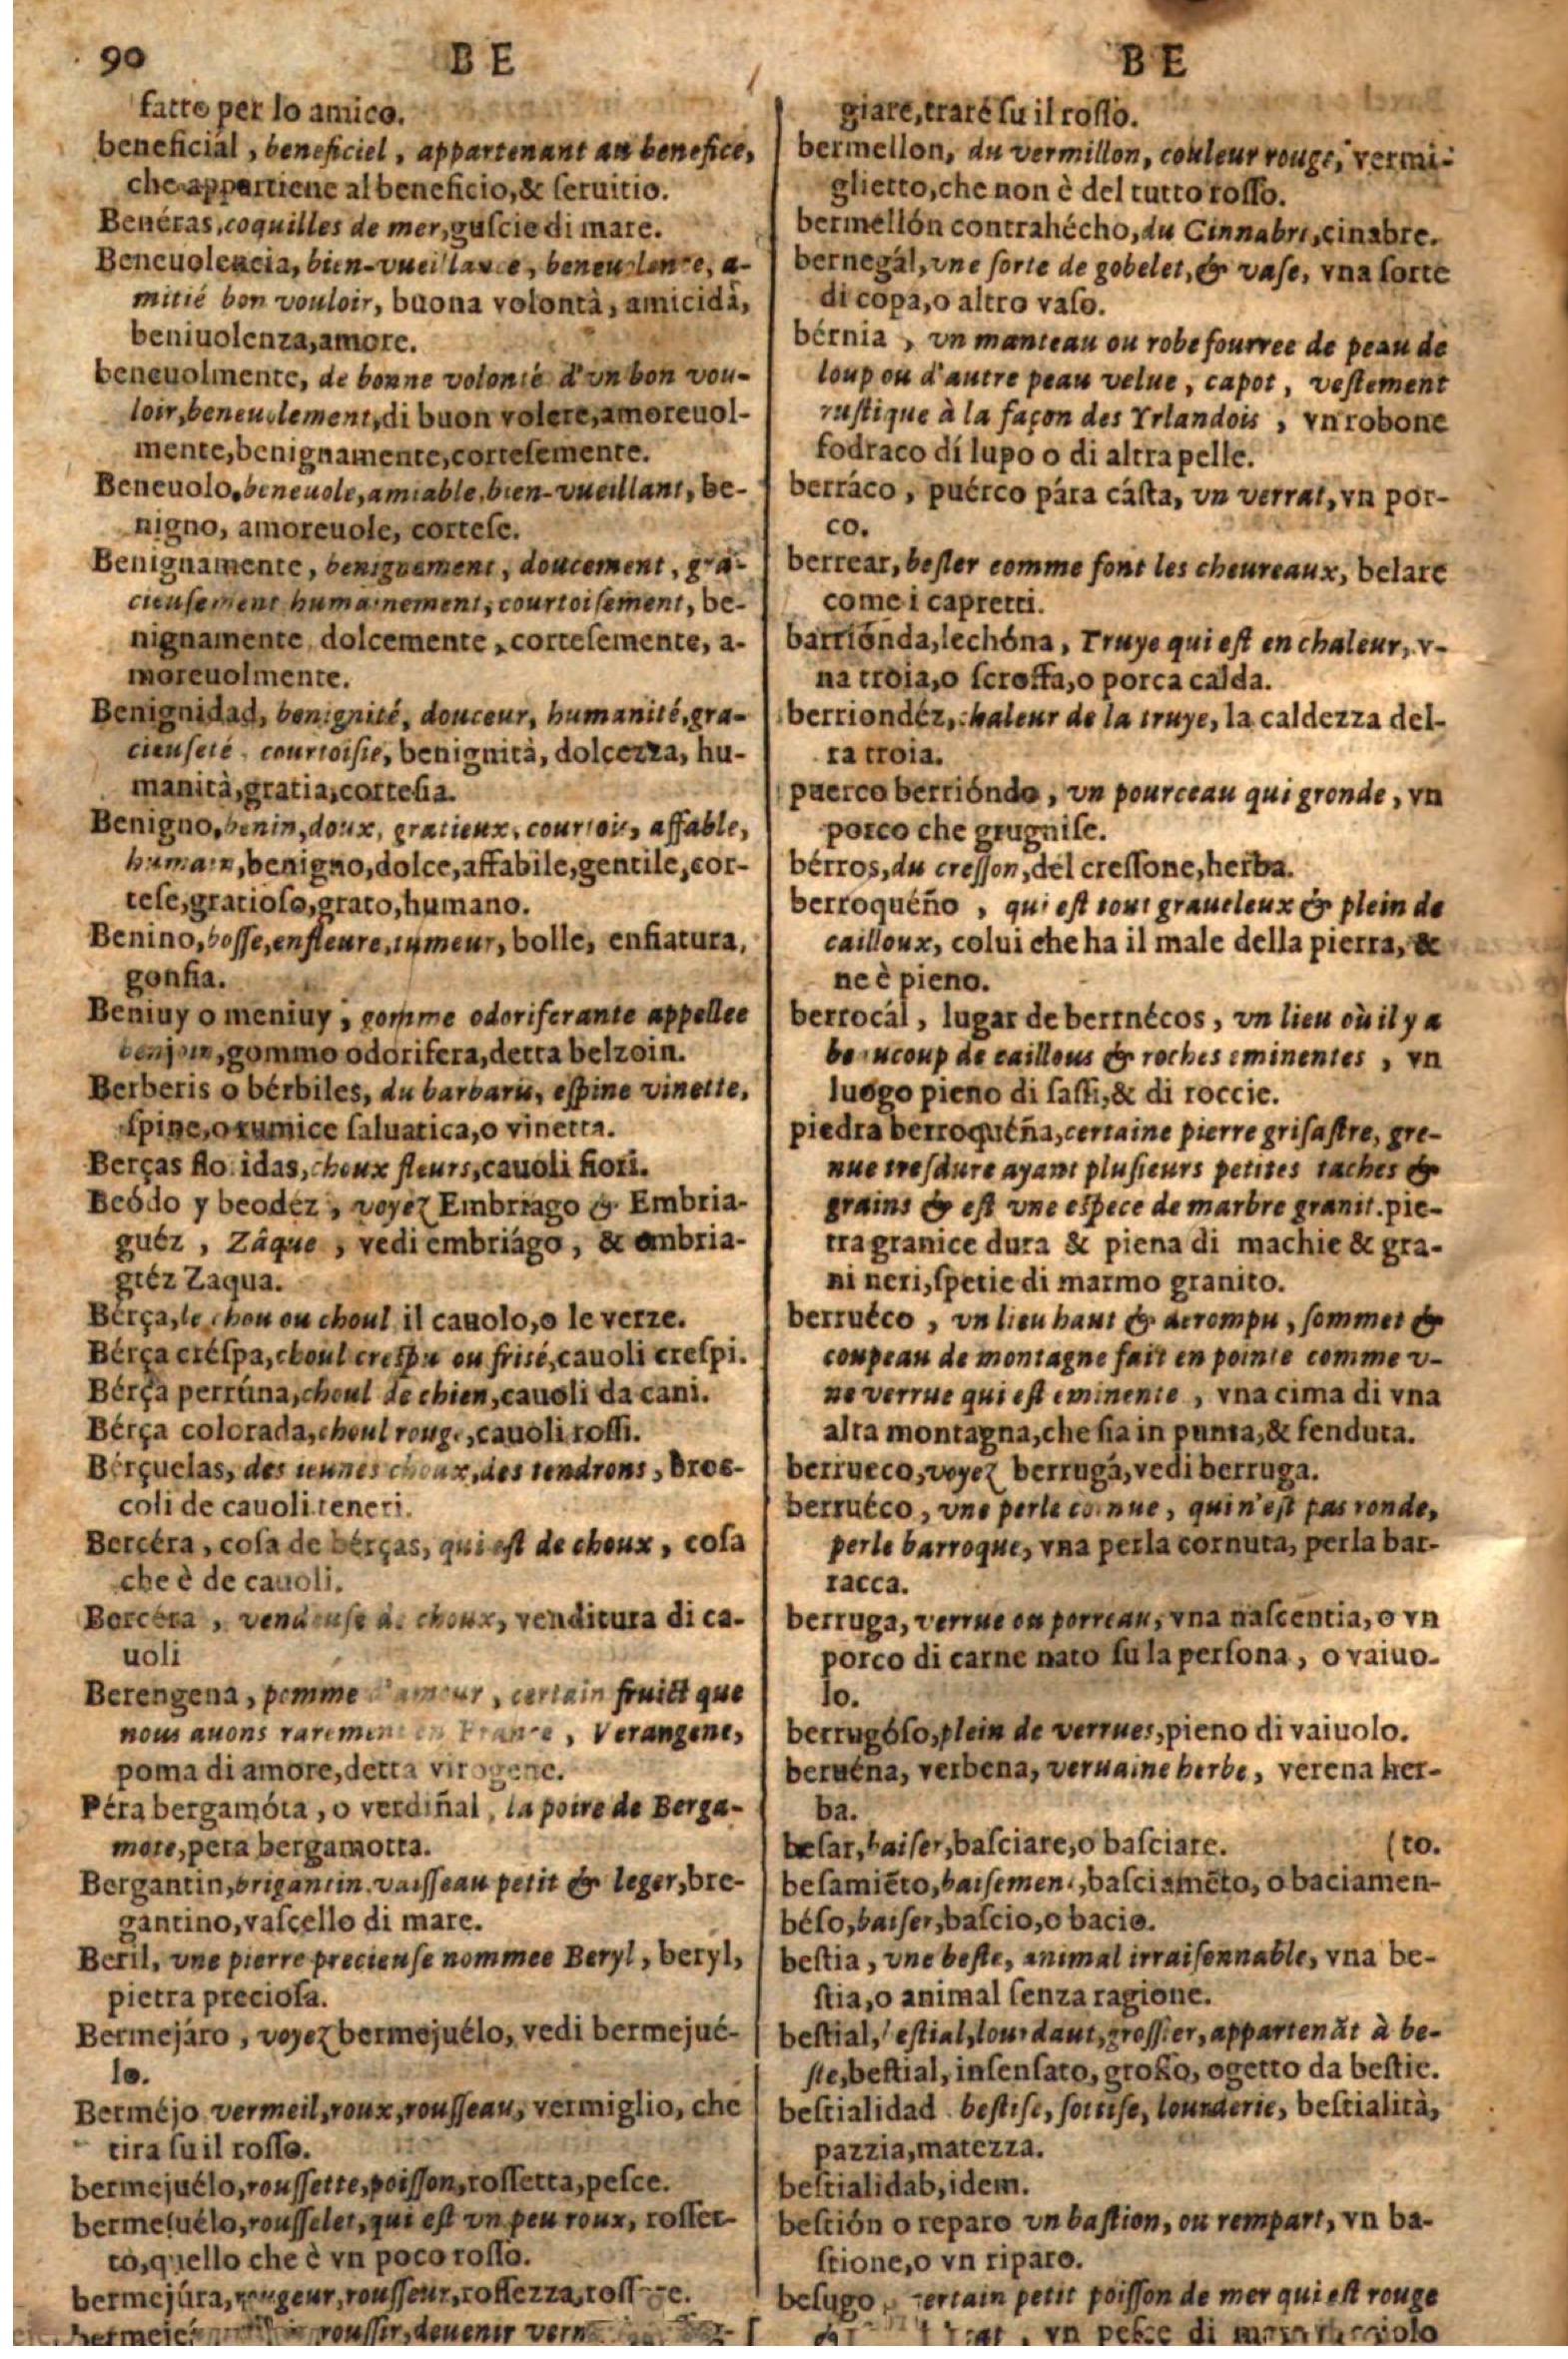 90 BE BE
fatto per lo amico.
beneficial, beneficiel, appartenant au benefice,
che appartiene al beneficio, & seruitio.
Benéras, coquilles de mer, guscie di mare.
Beneuolencia, bien-vueillance, beneuolence, a-
mitié bon vouloir, buona volontà, amicidà,
beniuolenza, amore.
beneuolmente, de bonne volonté d'vn bon vou-
loir, beneuolement, di buon volere, amoreuol-
mente, benignamente, cortesemente.
Beneuolo, beneuole, amiable, bien-vueillant, be-
nigno, amoreuole, cortese.
Benignamente, benignement, doucement, gra-
cieusement humainement, courtoisement, be-
nignamente, dolcemente, cortesemente, a-
moreuolmente.
Benignidad, benignité, douceur, humanité, gra-
cieuseté, courtoisie, benignità, dolcezza, hu-
manità, gratia, cortesia.
Benigno, benin, doux, gratieux, courtois, affable,
humain, benigno, dolce, affabile, gentile, cor-
tese, gratioso, grato, humano.
Benino, bosse, enfleure, tumeur, bolle, enfiatura,
gonfia.
Beniuy o meniuy, gomme odoriferante appellee
benjoin, gommo odorifera, detta belzoin.
Berberis o bérbiles, du barbaris, espine vinette,
spine, o rumice saluatica, o vinetta.
Berças floridas, choux fleurs, cauoli fiori.
Beódo y beodéz, voyez Embriágo & Embria-
guéz, Zâque, vedi embriágo, & embria-
gréz Zaqua.
Bérça, le chou ou choul il cauolo, o le verze.
Bérça créspa, choul crespu ou frisé, cauoli crespi.
Bérça perrúna, choul de chien, cauoli da cani.
Bérça colorada, choul rouge, cauoli rossi.
Bérçuelas, des ieunes choux, des tendrons, broc-
coli de cauoli teneri.
Bercéra, cosa de bérças, qui est de choux, cosa
che è de cauoli.
Bercéra, vendeuse de choux, venditura di ca-
uoli
Berengena, pomme d'amour, certain fruict que
nous auons rarement en France, Verangene,
poma di amore, detta virogene.
Péra bergamóta, o verdiñal, la poire de Berga-
mote, pera bergamotta.
Bergantin, brigantin, vaisseau petit & leger, bre-
gantino, vascello di mare.
Beril, vne pierre precieuse nommee Beryl, beryl,
pietra preciosa.
Bermejáro, voyez bermejuélo, vedi bermejué-
lo.
Berméjo vermeil, roux, rousseau, vermiglio, che
tira su il rosso.
bermejuélo, roussette, poisson, rossetta, pesce.
bermejuélo, rousselet, qui est vn peu roux, rosset-
to, quello che è vn poco rosso.
bermejúra, rougeur, rousseur, rossezza, rossore.
roussir, deuenir
giare, traré su il rosso.
bermellon, du vermillon, couleur rouge, vermi-
glietto, che non è del tutto rosso.
bermellón contrahécho, du Cinnabre, cinabre.
bernegál, vne sorte de gobelet, & vase, vna sorte
di copa, o altro vaso.
bérnia, vn manteau ou robe fourree de peau de
loup ou d'autre peau velue, capot, vestement
rustique à la façon des Yrlandois, vn robone
fodraco di lupo o di altra pelle.
berráco, puérco pára cásta, vn verrat, vn por-
co.
berrear, besler comme font les cheureaux, belare
come i capretti.
barriónda, lechóna, Truye qui est en chaleur, v-
na troia, o scroffa, o porca calda.
berriondéz, chaleur de la truye, la caldezza del-
ra troia.
puerco berrióndo, vn pourceau qui gronde, vn
porco che grugnise.
bérros, du cresson, del cressone, herba.
berroquéño, qui est tout graueleux & plein de
cailloux, colui che ha il male della pierra, &
ne è pieno.
berrocál, lugar de berrnécos, vn lieu où il y a
beaucoup de caillous & roches eminentes, vn
luogo pieno di sassi, & di roccie.
piedra berroquéña, certaine pierre grisastre, gre-
nue tresdure ayant plusieurs petites taches &
grains & est vne espece de marbre granit. pie-
tra granice dura & piena di machie & gra-
ni neri, spetie di marmo granito.
berruéco, vn lieu haut & arrompu, sommet &
coupeau de montagne fait en pointe comme v-
ne verrue qui est eminente, vna cima di vna
alta montagna, che sia in punta, & fenduta.
berrueco, voyez berrugá, vedi berruga.
berruéco, vne perle cornue, qui n'est pas ronde,
perle barroque, vna perla cornuta, perla bar-
racca.
berruga, verrue ou porreau, vna nascentia, o vn
porco di carne nato su la persona, o vaiuo-
lo.
berrugóso, plein de verrues, pieno di vaiuolo.
beruéna, verbena, veruaine herbe, verena her-
ba.
besar, baiser, basciare, o basciare. (to.
besamiēto, baisement, basciamēto, o baciamen-
béso, baiser, bascio, o bacio.
bestia, vne beste, animal irraisonnable, vna be-
stia, o animal senza ragione.
bestial, bestial, lourdaut, grossier, appartenāt à be-
ste, bestial, insensato, grosso, ogetto da bestie.
bestialidad bestise, sottise, lourderie, bestialità,
pazzia, matezza.
bestialidab, idem.
bestión o reparo vn bastion, ou rempart, vn ba-
stione, o vn riparo.
besugo, certain petit poisson de mer qui est rouge
vn pesce di